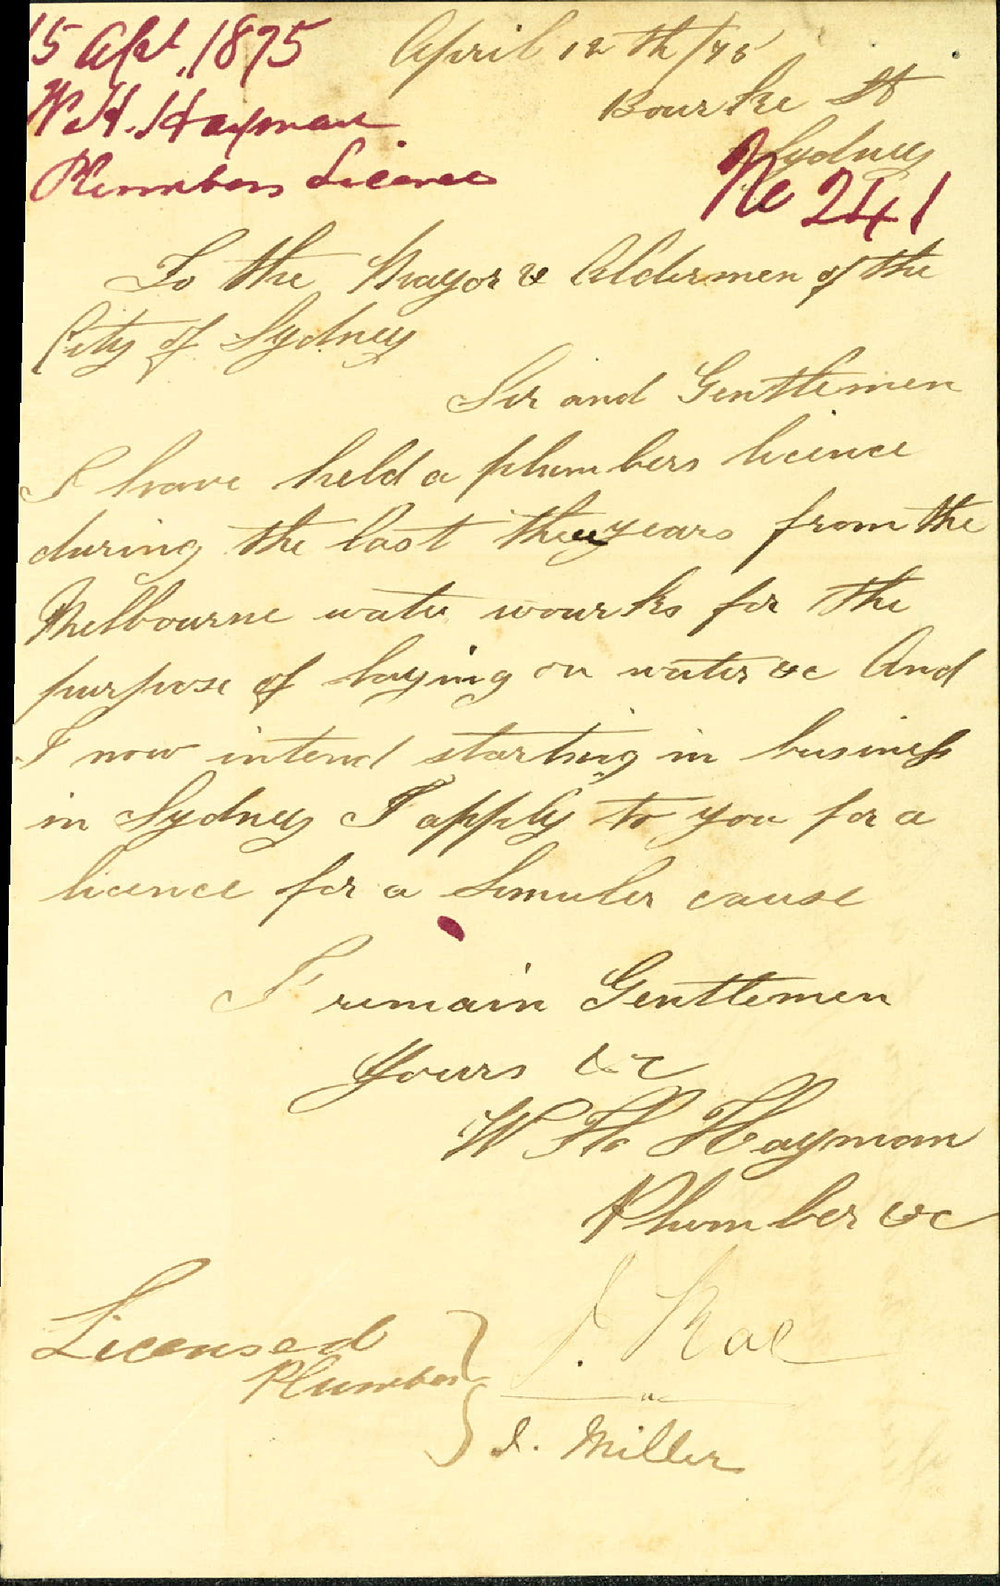 15 Apl. 1875
W. H. Hayman
Plumbers Licence
April 12th/75
Bourke St
Sydney
No 241
To the Mayor & Aldermen of the
City of Sydney
Sir and Gentlemen
I have held a plumbers licence
during the last three years from the
Melbourne water wourks for the
purpose of laying on water &c And
I now intend starting in business
in Sydney I apply to you for a
licence for a Simuler cause
I remain Gentlemen
Yours &c
W H Hayman
Plumber &c
Licensed
Plumber
J. Rae
"
J. Miller